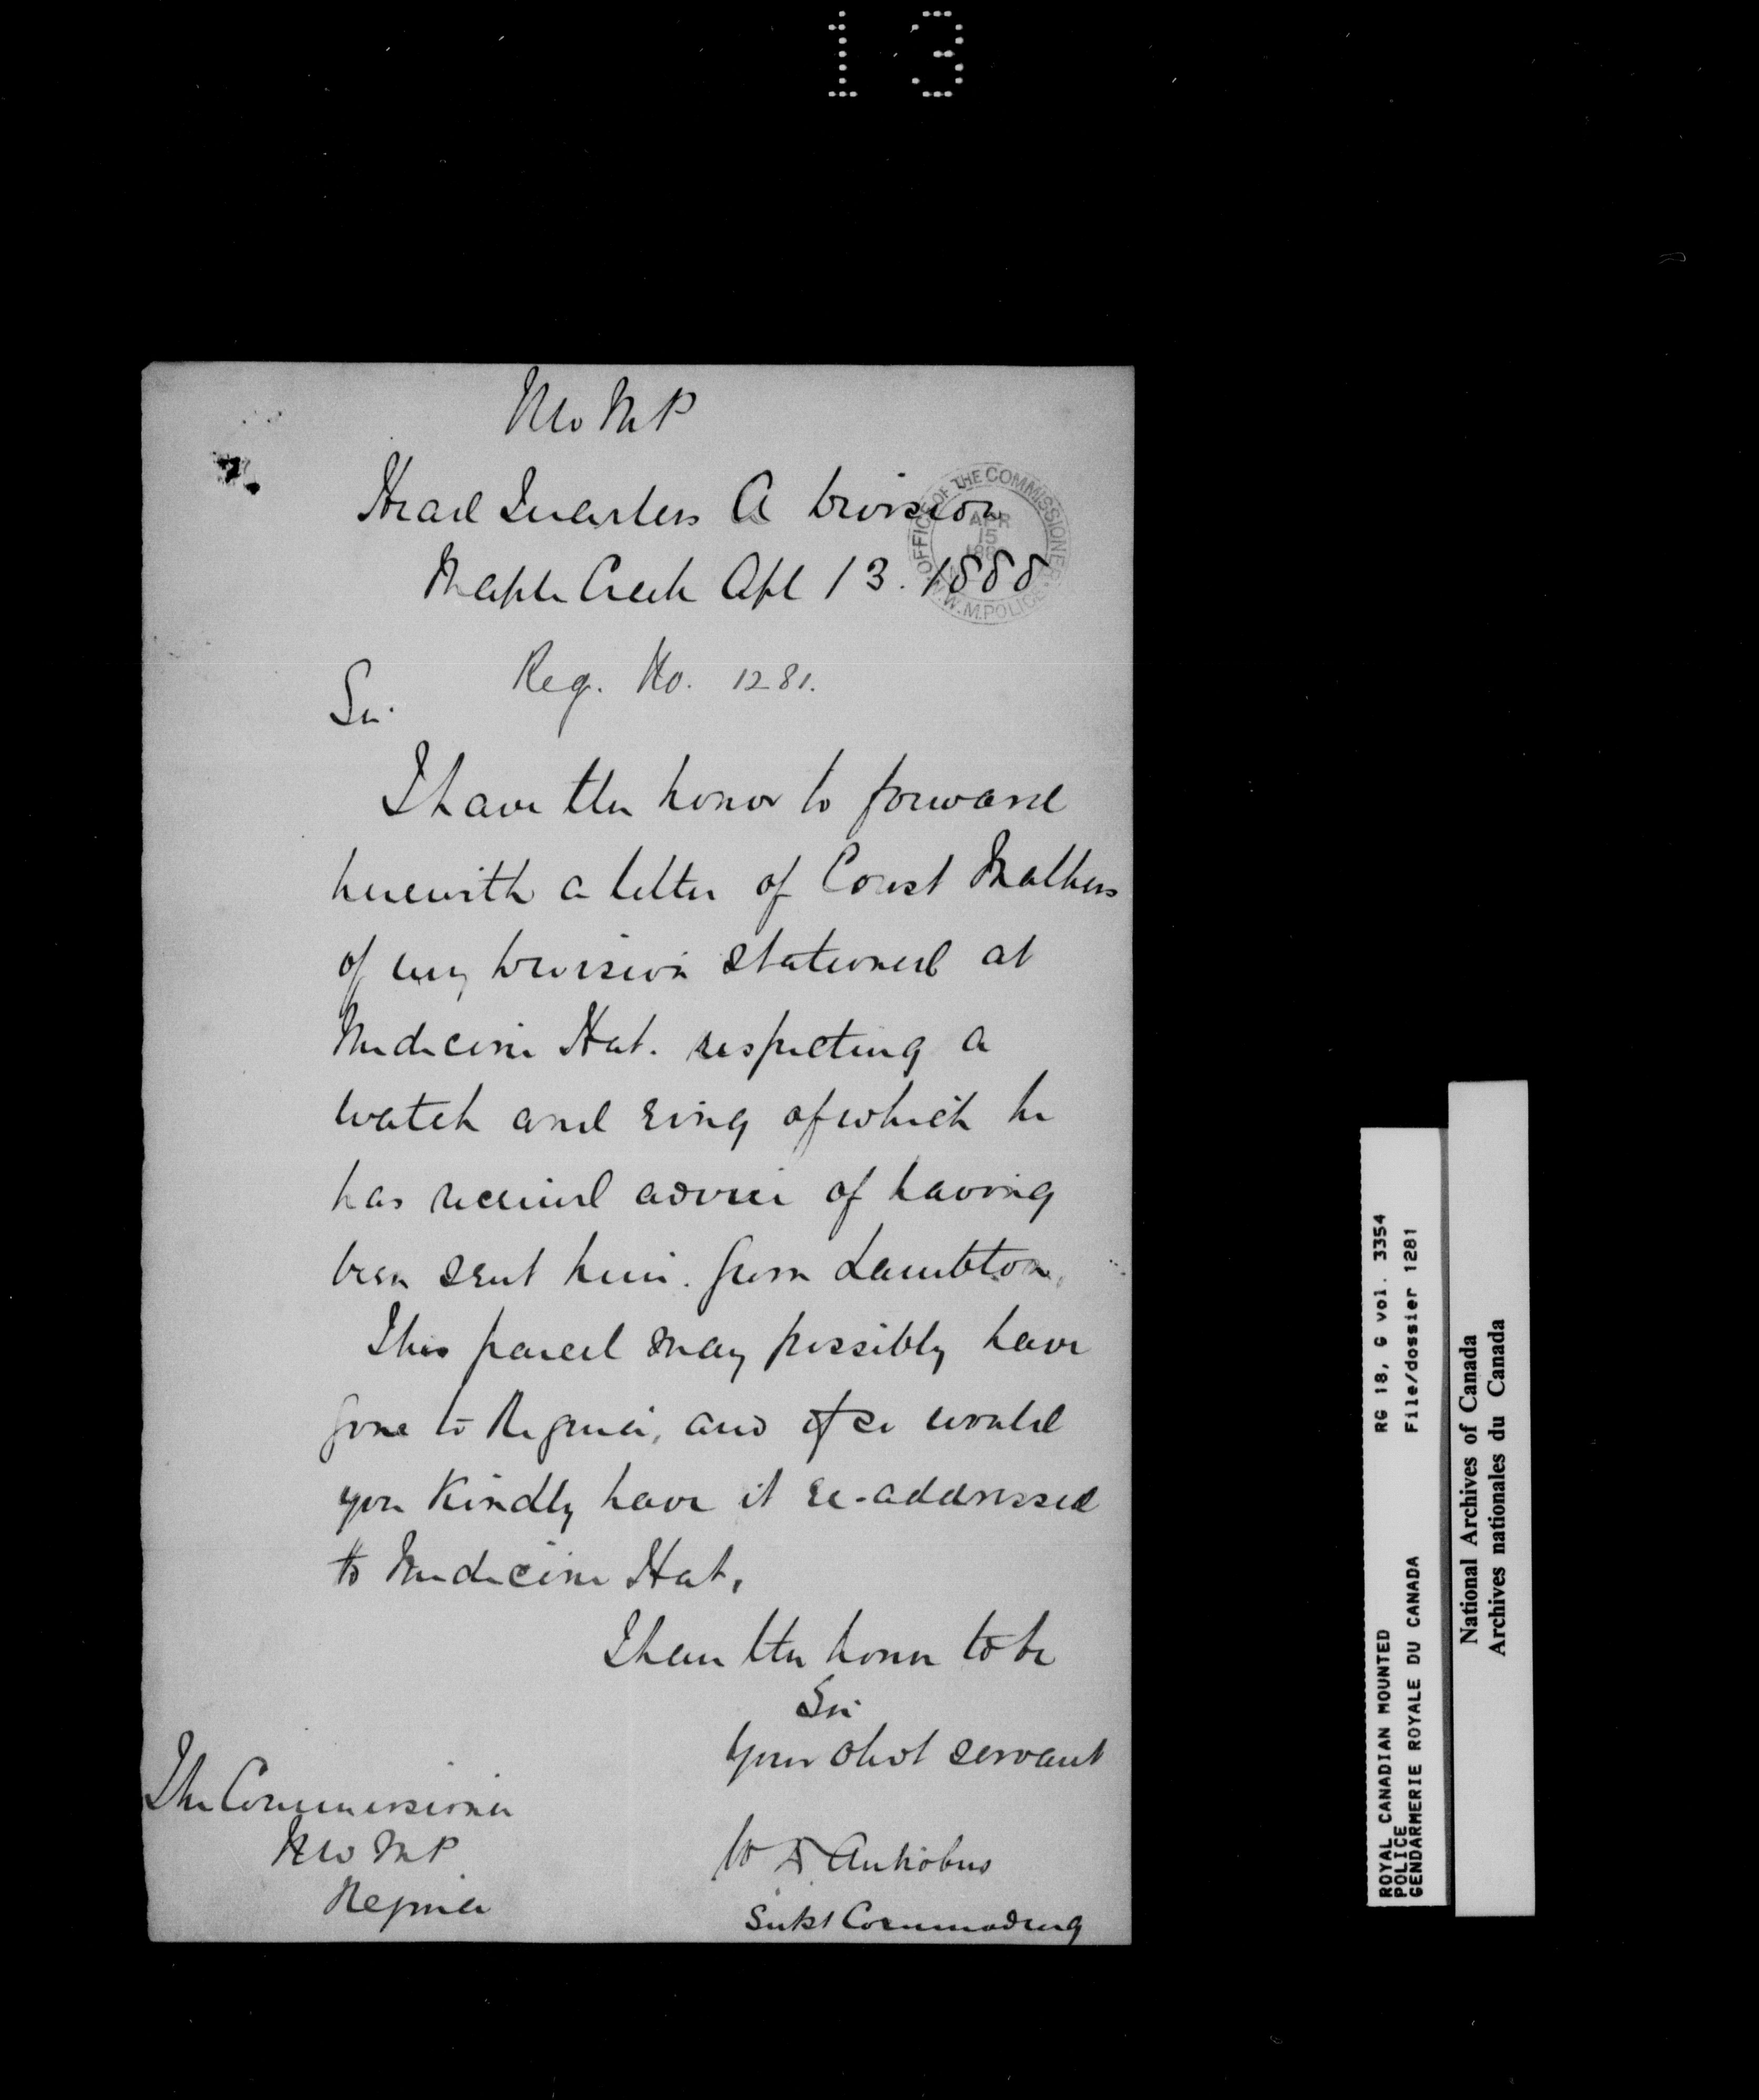 13
NWMP
Head Quarters A Division
Maple Creek Apl 13. 1888
OFFICE OF THE COMMISSIONER
APR
15
188
N.W.M.POLICE
Reg. No. 1281.
Sir
I have the honor to forward
herewith a letter of Const Mathers
of my Division stationed at
Medicine Hat. respecting a
watch and ring of which he
has received advice of having
been sent him. from Lambton,
This parcel may possibly have
gone to Regina, and if so would
you Kindly have it re-addressed
to Medicine Hat.
I have the honor to be
Sir
Your obdt servant
W D Antrobus
Supt Commanding
The Commissioner
NWMP
Regina
ROYAL CANADIAN MOUNTED RG 18, G vol. 3354
POLICE
GENDARMERIE ROYALE DU CANADA File/dossier 1281
National Archives of Canada
Archives nationales du Canada